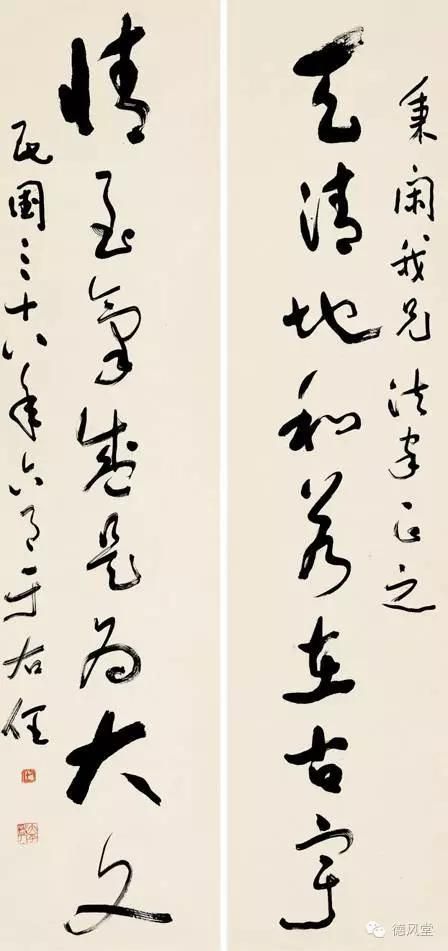 秉閑我兄 法家正之
天清地和若在古宇
情至氣盛是為大文
民國三十八年六月 于右任
德风堂